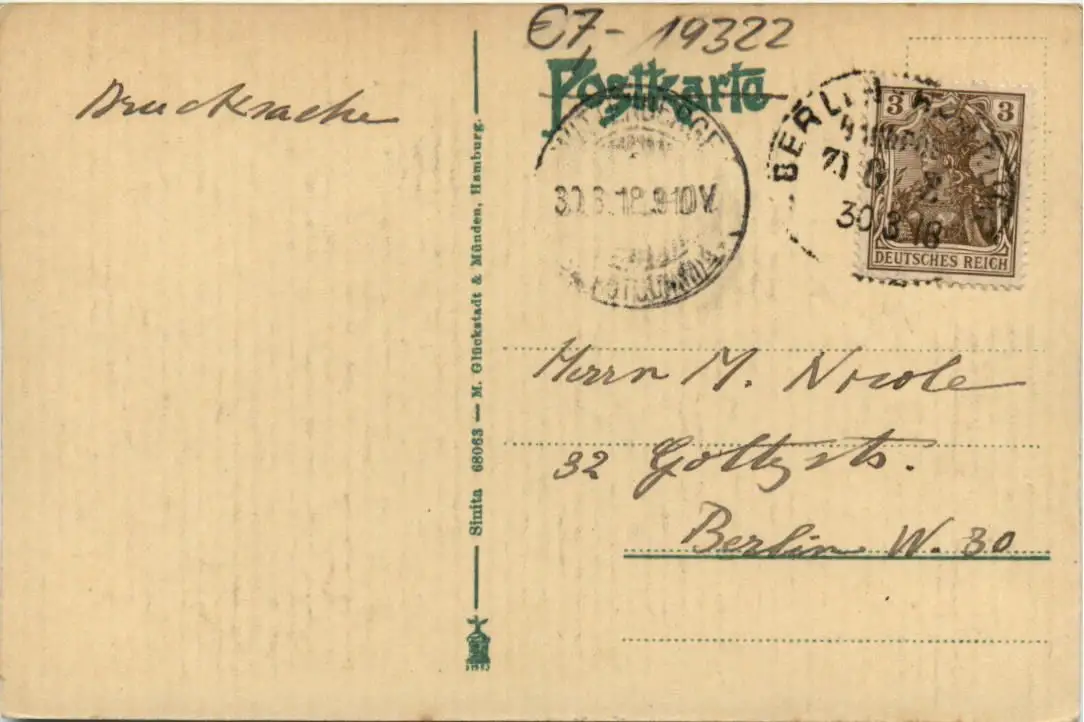 €7,- 19322
Postkarte
Drucksache
WITTENBERGE
30.3.18.9-10V.
BERLIN
30 3 18
3 3
DEUTSCHES REICH
Sinita 68063 — M. Glückstadt & Münden, Hamburg.
Herrn M. Nicole
32 Goltzstr.
Berlin W. 30